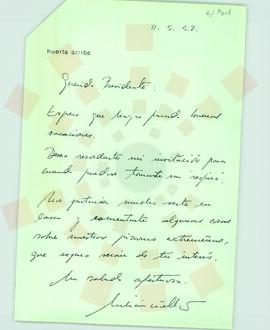 huerta arriba
Querido Presidente:
Espero que hayas pasado buenas
vacaciones.
Deseo recordarte mi invitación para
cuando puedas tomarte un respiro.
Nos gustaría mucho verte en
casa y comentarte algunas cosas
sobre nuestros extremeños,
que seguro serán de tu interés.
Un saludo afectuoso.